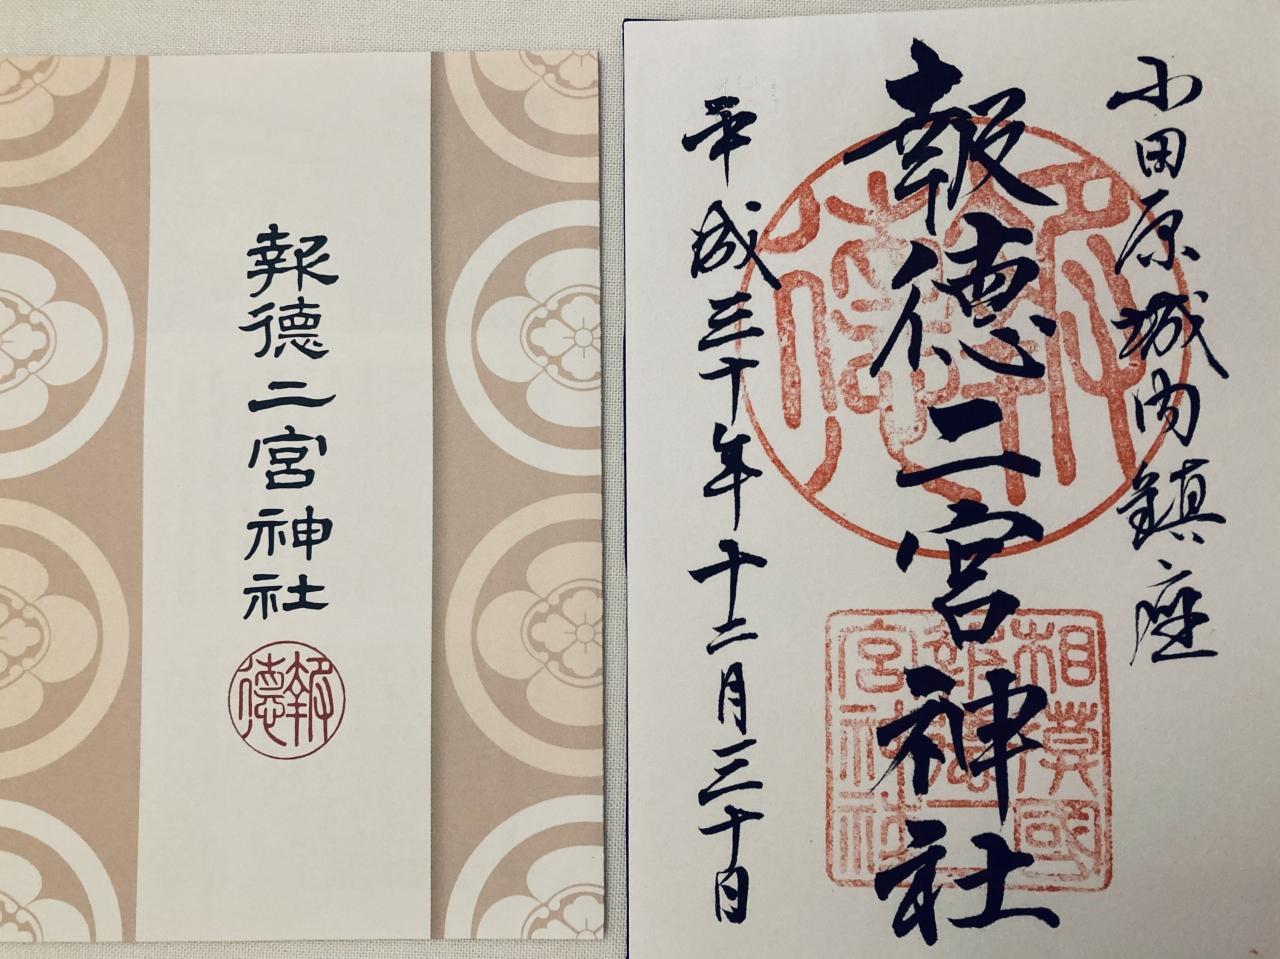 報徳二宮神社
報徳
小田原城内鎮座
報徳二宮神社
平成三十年十二月三十日
報徳
相模國
報徳二
宮神社